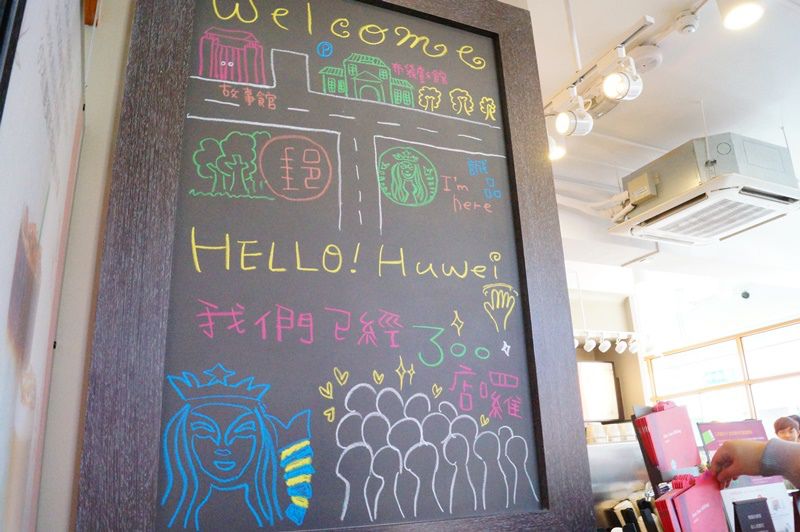 Welcome
P
布袋戲館
故事館
郵
誠品
I'm
here
HELLO! Huwei
我們已經
300
店囉